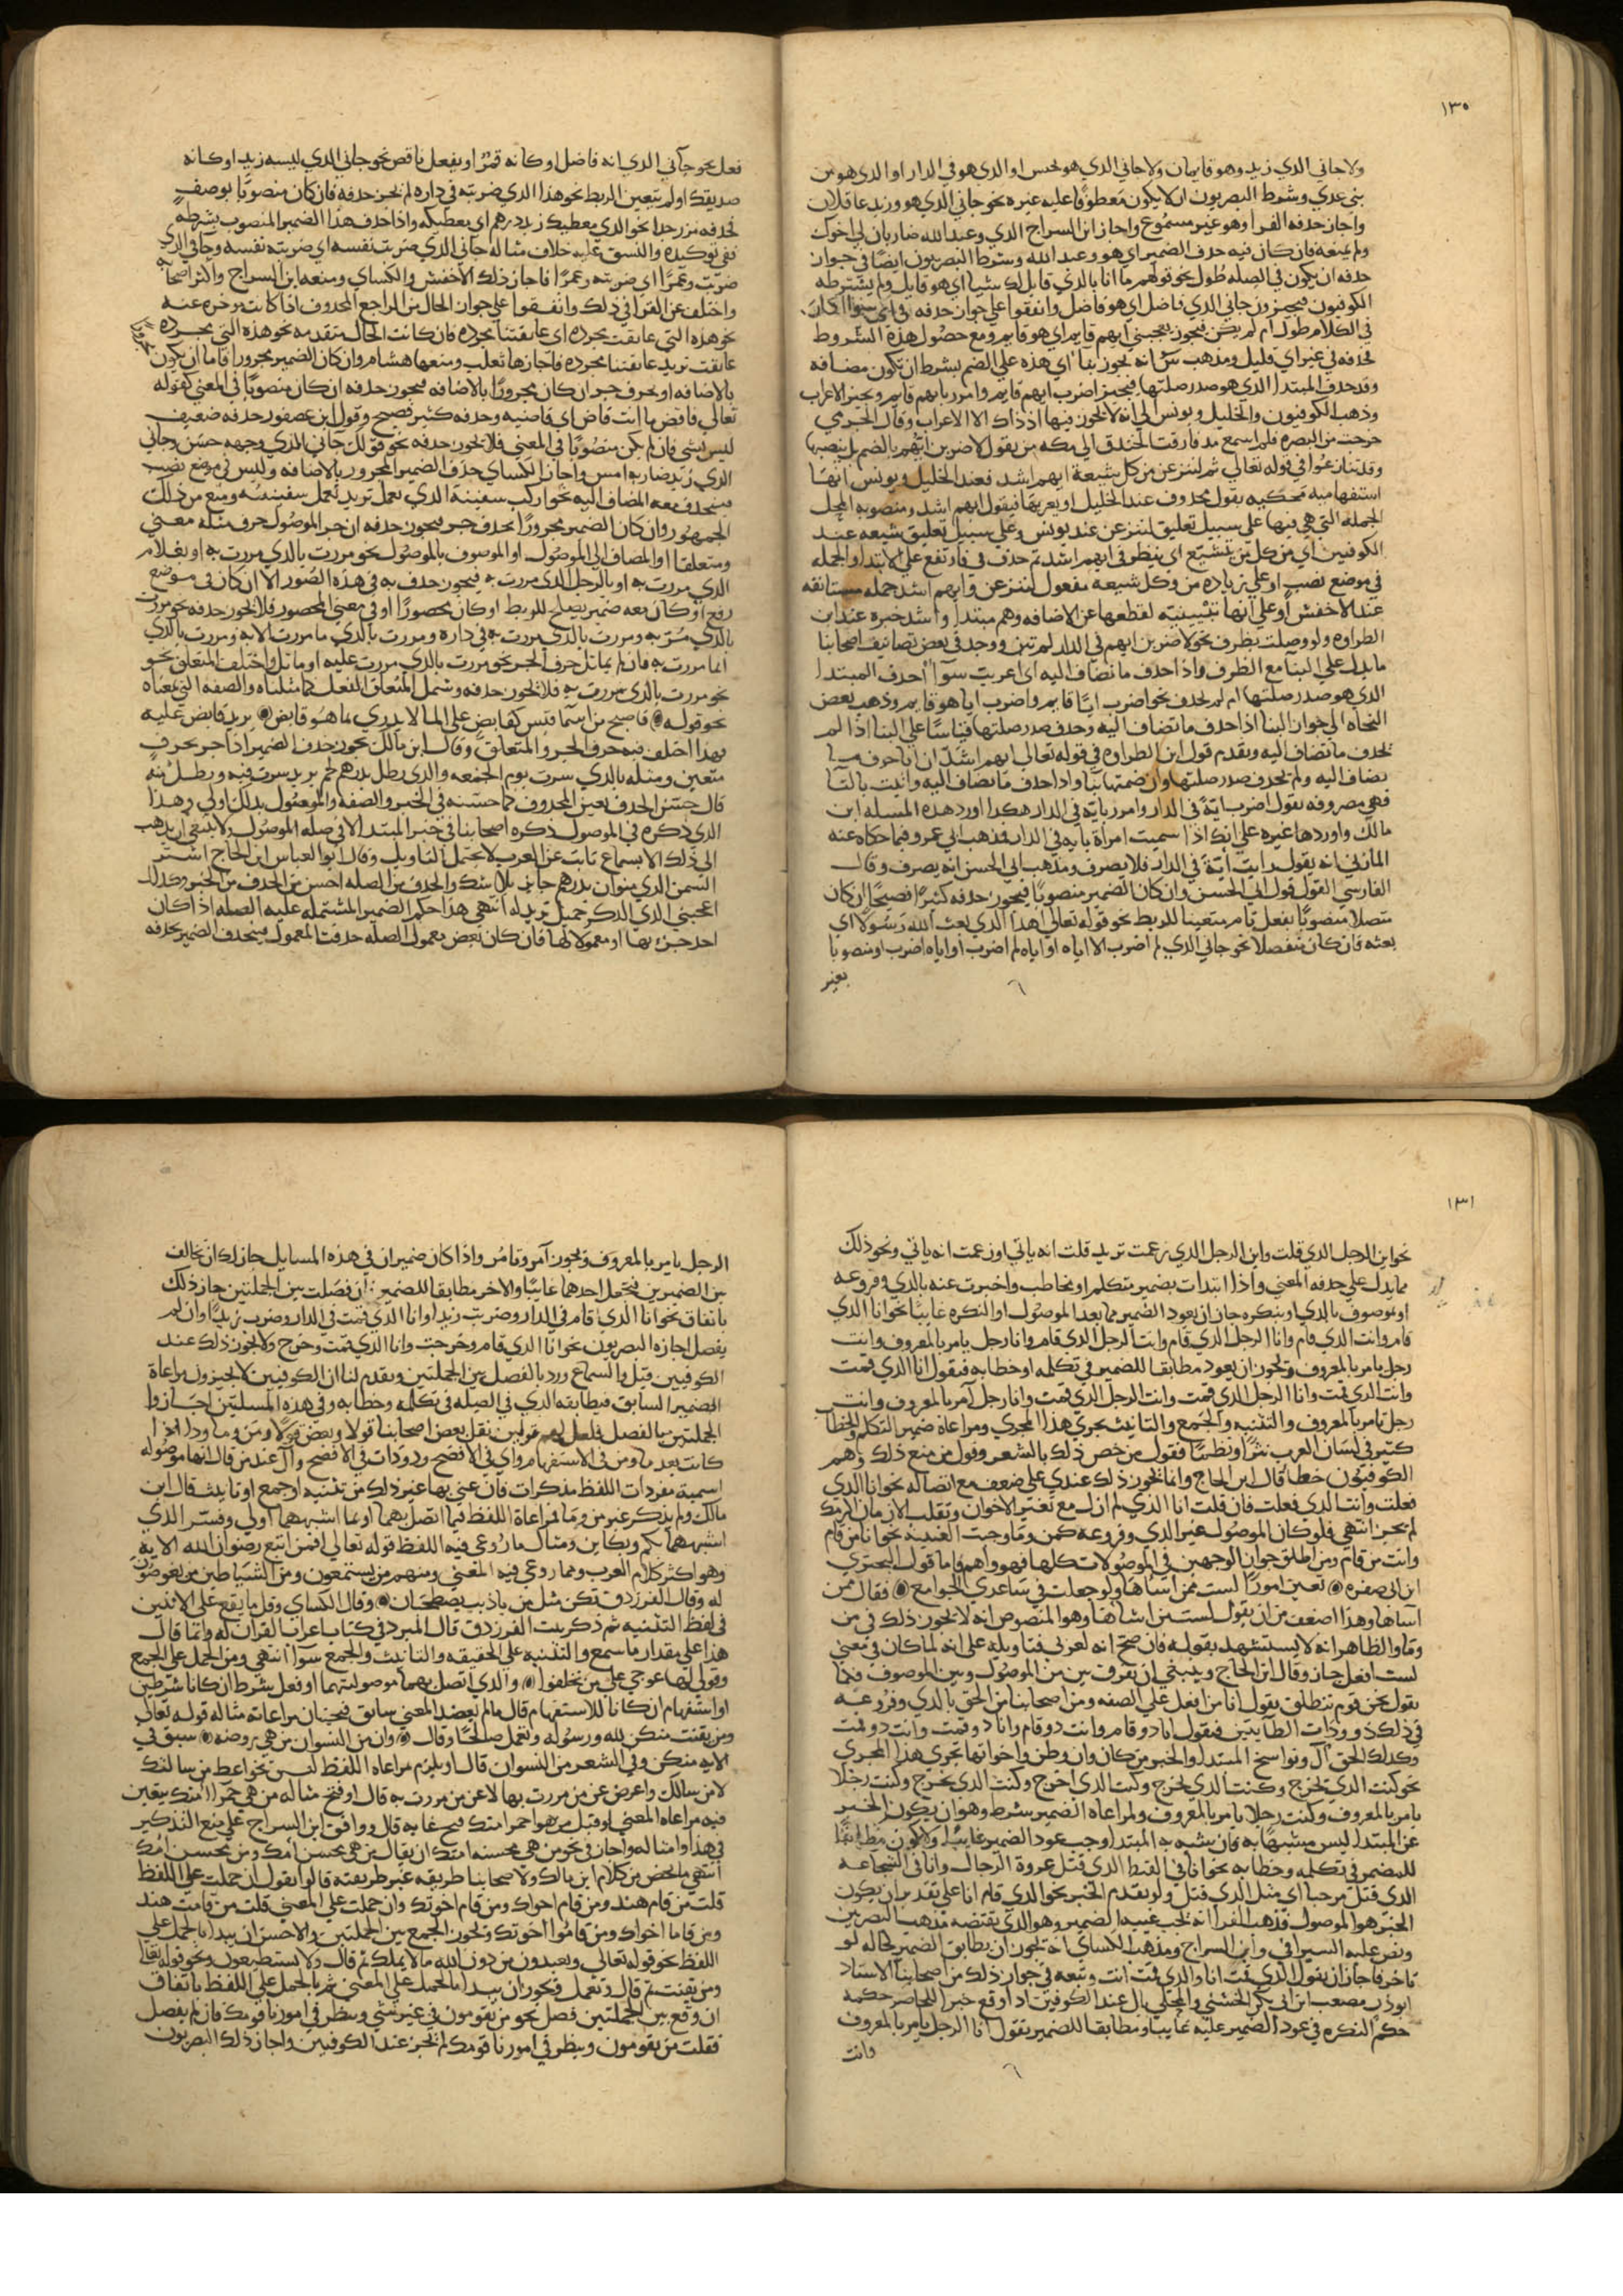 ١٣٥
ولا جاني الذي زيد وهو قايمان ولا جاني الذي هو لحسن او الذي هو في الدار او الذي هو من
بني عدي وشرط البصريون ان لا يكون معطوفا عليه غيره نحو جاني الذي هو وزيد عاقلان
واجاز حذفه الفرا وهو غير مسموع واجاز ابن السراج الذي وعبد الله ضاربان لي اخوك
ولم يمنعه وان كان فيه حذف الضمير اي هو وعبد الله وشرط البصريون ايضا في جواز
حذفه ان يكون في الصله طول نحو قولهم ما انا بالذي قايل لك شيا اي هو قايل ولم يشترطه
الكوفيون فيجيزون جاني الذي فاضل اي هو فاضل واتفقوا علي جواز حذفه في اي سوا اكان
في الكلام طول ام لم يكن فيجوز يعجبني ايهم قايم اي هو قايم ومع حصول هذه الشروط
فحذفه في غير اي قليل ومذهب س انه يجوز بنا اي هذه علي الضم بشرط ان تكون مضافه
وقد حذف المبتدا الذي هو صدر صلتها فيجيز اضرب ايهم قايم وامرر بايهم قايم ويجيز الاعراب
وذهب الكوفيون والخليل ويونس الي انه لا يجوز فيها اذ ذاك الا الاعراب وقال الجرمي
خرجت من البصره فلم اسمع مذ فارقت الخندق الي مكه من يقول لاضربن ايهم بالضم بل ينصبها
وقد تنازعوا في قوله تعالي ثم لننزعن من كل شيعة ايهم اشد فعند الخليل ويونس انها
استفهاميه محكيه بقول محذوف عند الخليل
الجملة التي هي فيها علي سبيل تعليق لننزعن عند يونس وعلي سبيل تعليق شيعه عند
الكوفيين اي من كل من تشيع اي ينظر في ايهم اشد ثم حذف في فارتفع علي الابتدا والجمله
في موضع نصب او علي زياده من وكل شيعه مفعول لننزعن وايهم اشد جمله مستانفه
عند الاخفش او علي انها تبيينيه لقطعها عن الاضافه وهم مبتدا واشد خبره عند ابن
الطراوه ولو وصلت بظرف نحو لاضربن ايهم في الدار لم تبن ووجد في بعض تصانيف اصحابنا
ما يدل علي البنا مع الظرف واذا حذف ما تضاف اليه اي اعربت سوا احذف المبتدا
الذي هو صدر صلتها ام لم يحذف نحو اضرب ايا قايم واضرب ايا هو قايم وذهب بعض
النحاه الي جواز البنا اذا حذف ما تضاف اليه وحذف صدر صلتها قياسا علي البنا اذا لم
يحذف ما تضاف اليه وتقدم قول ابن الطراوه في قوله تعالي ايهم اشد ان ايا حرف
يضاف اليه ولم يحذف صدر صلتها وان ضمتها بنا واذا حذف ما تضاف اليه وانيت بالتا
فهي مصروفه تقول اضرب اية في الدار وامرر باية في الدار هكذا اورد هذه المسله ابن
مالك واوردها غيره علي انك اذا سميت امراة باية في الدار فذهب ابي عمرو فيما حكاه عنه
المازني انه يقول رايت اية في الدار فلا يصرف ومذهب ابي الحسن انه يصرف وقال
الفارسي القول قول ابي الحسن وان كان الضمير منصوبا فيجوز حذفه كثيرا فصيحا ان كان
متصلا منصوبا بفعل تام متعينا للربط نحو قوله تعالي اهذا الذي بعث الله رسولا اي
بعثه فان كان منفصلا نحو جاني الذي لم اضرب الا اياه او اياه لم اضرب او اياه اضرب او منصوبا
بغير
فعل نحو جاني الذي انه فاضل او كانه قمر او بفعل ناقص نحو جاني الذي ليسه زيد او كانه
صديقك او لم يتعين للربط نحو هذا الذي ضربته في داره لم يجز حذفه فان كان منصوبا بوصف
فحذفه نزر جدا نحو الذي معطيك زيد درهم اي معطيكه واذا حذف هذا الضمير المنصوب بشرطه
ففي توكيده والنسق عليه خلاف مثاله جاني الذي ضربت نفسه اي ضربته نفسه وجاني الذي
ضربت وعمرا اي ضربته وعمرا فاجاز ذلك الاخفش والكساي ومنعه ابن السراج واكثر اصحابنا
واختلف عن الفرا في ذلك واتفقوا علي جواز الحال من الراجع المحذوف اذا كانت موخره عنه
نحو هذه التي عانقت مجرده اي عانقتها مجرده فان كانت الحال متقدمه نحو هذه التي مجرده
عانقت تريد عانقتها مجرده فاجازها ثعلب ومنعها هشام وان كان الضمير مجرورا فاما ان يكون
بالاضافه او بحرف جر ان كان مجرورا بالاضافه فيجوز حذفه ان كان منصوبا في المعني كقوله
تعالي فاقض ما انت قاض اي قاضيه وحذفه كثير فصيح وقول ابن عصفور حذفه ضعيف
ليس بشي فان لم يكن منصوبا في المعني فلا يجوز حذفه نحو قولك جاني الذي وجهه حسن وجاني
الذي زيد ضاربه امس واجاز الكساي حذف الضمير المجرور بالاضافه وليس في موضع نصب
فيحذف معه المضاف اليه نحو اركب سفينة الذي تعمل تريد تعمل سفينته ومنع من ذلك
الجمهور وان كان الضمير مجرورا بحرف جر فيجوز حذفه ان جر الموصول حرف مثله معني
ومتعلقا او المضاف الي الموصول او الموصوف بالموصول نحو مررت بالذي مررت به او بغلام
الذي مررت به او بالرجل الذي مررت به فيجوز حذف به في هذه الصور الا ان كان في موضع
رفع او كان معه ضمير يصلح للربط او كان محصورا او في معني المحصور فلا يجوز حذفه نحو مررت
بالذي مر به ومررت بالذي مررت به في داره ومررت بالذي ما مررت الا به ومررت بالذي
انما مررت به فان لم يماثل حرف الجر نحو مررت بالذي مررت عليه او ماثل واختلف المتعلق نحو
نحو مررت بالذي مررت به فلا يجوز حذفه وشمل المتعلق الفعل كما مثلناه والصفه التي بمعناه
نحو قوله فاصبح من اسما قيس كقابض علي الما لا يدري بما هو قابض يريد قابض عليه
فهذا اختلف فيه حرف الجر والمتعلق وقال ابن مالك يجوز حذف الضمير اذا جر بحرف
متعين ومثله بالذي سرت يوم الجمعه والذي رطل بدرهم لحم يريد سرت فيه ورطل منه
قال حسن الحذف تعين المحذوف كما حسنه في الخبر والصفه والموصول بذلك اولي وهذا
الذي ذكره في الموصول ذكره اصحابنا في خبر المبتدا لا في صله الموصول ولا ينبغي ان يذهب
الي ذلك الا بسماع ثابت عن العرب لا يحتمل التاويل وقال ابو العباس ابن الحاج اشتر
السمن الذي منوان بدرهم جايز بلا شك والحذف من الصله احسن من الحذف من الخبر وكذلك
اعجبني الذي الدكر تحميل تريد له انتهي هذا حكم الضمير المشتمله عليه الصله اذا كان
احد جزئيها او معمولا لها فان كان بعض معمول الصله حذفت المعمول فينحذف الضمير بحذفه
١٣١
نحو اين الرجل الذي قلت واين الرجل الذي زعمت تريد قلت انه ياتي او زعمت انه ياتي ونحو ذلك
مما يدل علي حذفه المعني واذا ابتدات بضمير متكلم او مخاطب واخبرت عنه بالذي وفروعه
او موصوف بالذي او بنكره جاز ان يعود الضمير مما بعد الموصول او النكره غايبا نحو انا الذي
قام وانت الذي قام وانا الرجل الذي قام وانت الرجل الذي قام وانا رجل يامر بالمعروف وانت
رجل يامر بالمعروف ويجوز ان يعود مطابقا للضمير في تكلمه او خطابه فتقول انا الذي قمت
وانت الذي قمت وانا الرجل الذي قمت وانت الرجل الذي قمت وانا رجل آمر بالمعروف وانت
رجل تامر بالمعروف والتثنيه والجمع والتانيث يجري هذا المجري ومراعاة ضمير التكلم والخطاب
كثير في لسان العرب نثرا ونظما فقول من خص ذلك بالشعر وقول من منع ذلك وهم
الكوفيون خطا قال ابن الحاج وانما يجوز ذلك عندي علي ضعف مع اتصاله نحو انا الذي
فعلت وانت الذي فعلت فان قلت انا الذي لم ازل مع تغير الاخوان وتقلب الازمان اكرمتك
لم يحسن انتهي فلو كان الموصول غير الذي وفروعه كمن وما وجبت الغيبه نحو انا من قام
وانت من قام ومن اطلق جواز الوجهين في الموصولات كلها فهو واهم فاما قول البحتري
لست ممن اساها ولو جعلت في ساعدي الجوامع فقال ممن
اساها وهذا اضعف من ان يقول لست من اساها وهو المنصوص انه لا يجوز ذلك في من
وما والظاهر انه لا يستشهد بقوله فان صح انه لعربي فتاويله علي انه لما كان في معني
لست افعل جاز وقال ابن الحاج وينبغي ان يفرق بين من الموصول وبين الموصوف فكما
يقول نحن قوم ننطلق يقول انا من افعل علي الصفه ومن اصحابنا من الحق بالذي وفروعه
في ذلك ذو وذات الطايتين فتقول انا ذو قام وانت ذو قام وانا ذو قمت وانت ذو قمت
وكذلك الحق ال ونواسخ المبتدا والخبر من كان وان وظن واخواتها تجري هذا المجري
نحو كنت الذي يخرج وكنت الذي تخرج وكنت الذي اخرج وكنت الذي تخرج وكنت رجلا
يامر بالمعروف وكنت رجلا يامر بالمعروف ولمراعاة الضمير شرط وهو ان يكون الخبر
عن المبتدا ليس مشبها به فان شبه به المبتدا وجب عود الضمير غايبا ولا يكون مطابقا
للضمير في تكلمه وخطابه نحو انا في القتل الذي قتل عروة الرجال وانا في الشجاعه
الذي قتل مرحبا اي مثل الذي قتل ولو تقدم الخبر نحو الذي قام انا علي تقدير ان يكون
الخبر هو الموصول فذهب الفرا انه يجب غيبه الضمير وهو الذي يقتضيه مذهب البصريين
ونص عليه السيرافي وابن السراج ومذهب الكساي انه يجوز ان يطابق الضمير كحاله لو
تاخر فاجاز ان يقول الذي قمت انا والذي قمت انت وتبعه في جواز ذلك من اصحابنا الاستاذ
ابو ذر مصعب ابن ابي بكر الخشني والمحلي بال عند الكوفيين اذا وقع خبرا للحاضر حكمه
حكم النكره في عود الضمير عليه غايبا ومطابقا للضمير يقول انا الرجل يامر بالمعروف
وانت
الرجل يامر بالمعروف ويجوز آمر وتامر واذا كان ضميران في هذه المسايل جاز لك ان تخالف
بين الضميرين فتجعل احدهما غايبا والاخر مطابقا للضمير ان فصلت بين الجملتين جاز ذلك
باتفاق نحو انا الذي قام في الدار وضربت زيدا وانا الذي قمت في الدار وضرب زيدا وان لم
يفصل اجازه البصريون نحو انا الذي قام وخرجت وانا الذي قمت وخرج ولا يجوز ذلك عند
الكوفيين قبل والسماع ورد بالفصل بين الجملتين وتقدم لنا ان الكوفيين لا يجيزون مراعاة
الضمير السابق فيطابقه الذي في الصله في تكلمه وخطابه وفي هذه المسلتين اجازوا
الجملتين بالفصل فلعل لهم قولين نقل بعض اصحابنا قولا وبعض قولا ومن وما وذا اذا
كانت بعد ما ومن في الاستفهام واي في الافصح وذو وذات في الافصح وال عند من قال انها موصوله
اسمية مفردات اللفظ مذكرات فان عني بها غير ذلك من تثنيه او جمع او تانيث قال ابن
مالك ولم يذكر غير من وما فمراعاة اللفظ فيما اتصل بهما او بما اشبههما اولي وفسر الذي
اشبههما بكم وبكاين ومثال ما روعي فيه اللفظ قوله تعالي افمن اتبع رضوان الله الايه
وهو اكثر كلام العرب ومما روعي فيه المعني ومنهم من يستمعون ومن الشياطين من يغوصون
له وقال الفرزدق تكن مثل من ياذيب يصطحبان وقال الكساي وقل ما يقع علي الاثنين
في لفظ التثنيه ثم ذكر بيت الفرزدق قال المبرد في كتاب اعراب القران له وانما قال
هذا علي مقدار ما سمع والتثنيه علي الحقيقه والتانيث والجمع سوا انتهي ومن الحمل علي الجمع
وقولي لها عوجي علي من تخلفوا والذي اتصل بهما موصوليتهما او فعل شرط ان كانا شرطين
او استفهام ان كانا للاستفهام قال ما لم يعضد المعني سابق فيختار مراعاته مثاله قوله تعالي
ومن يقنت منكن لله ورسوله وتعمل صالحا وقال وان من النسوان من هي روضه سبق في
الايه منكن وفي الشعر من النسوان قال او يلزم مراعاه اللفظ لبس نحو اعط من سالتك
لا من سالك واعرض عن من مررت بها لا عن من مررت به قال او قبح مثاله من هي حمرا امتك يتعين
فيه مراعاه المعني او قيل من هو احمر امتك قبح غايه قال ووافق ابن السراج علي منع التذكير
في هذا وامثاله واجاز في نحو من هي محسنه امتك ان يقال من هي محسن امك ومن محسن امك
انتهي ما لخص من كلام ابن مالك ولاصحابنا طريقه غير طريقته قالوا يقول ان حملت علي اللفظ
قلت من قام هند ومن قام اخواك ومن قام اخوتك وان حملت علي المعني قلت من قامت هند
ومن قاما اخواك ومن قاموا اخوتك ويجوز الجمع بين الجملتين والاحسن ان يبدا بالحمل علي
اللفظ نحو قوله تعالي ويعبدون من دون الله ما لا يملك ثم قال ولا يستطيعون ونحو قوله تعالي
ومن يقنت ثم قال وتعمل ويجوز ان يبدا بالحمل علي المعني ثم بالحمل علي اللفظ باتفاق
ان وقع بين الجملتين فصل نحو من يقومون في غير شي وينظر في امورنا قومك فان لم يفصل
فقلت من يقومون وينظر في امورنا قومك لم يجز عند الكوفيين واجاز ذلك البصريون